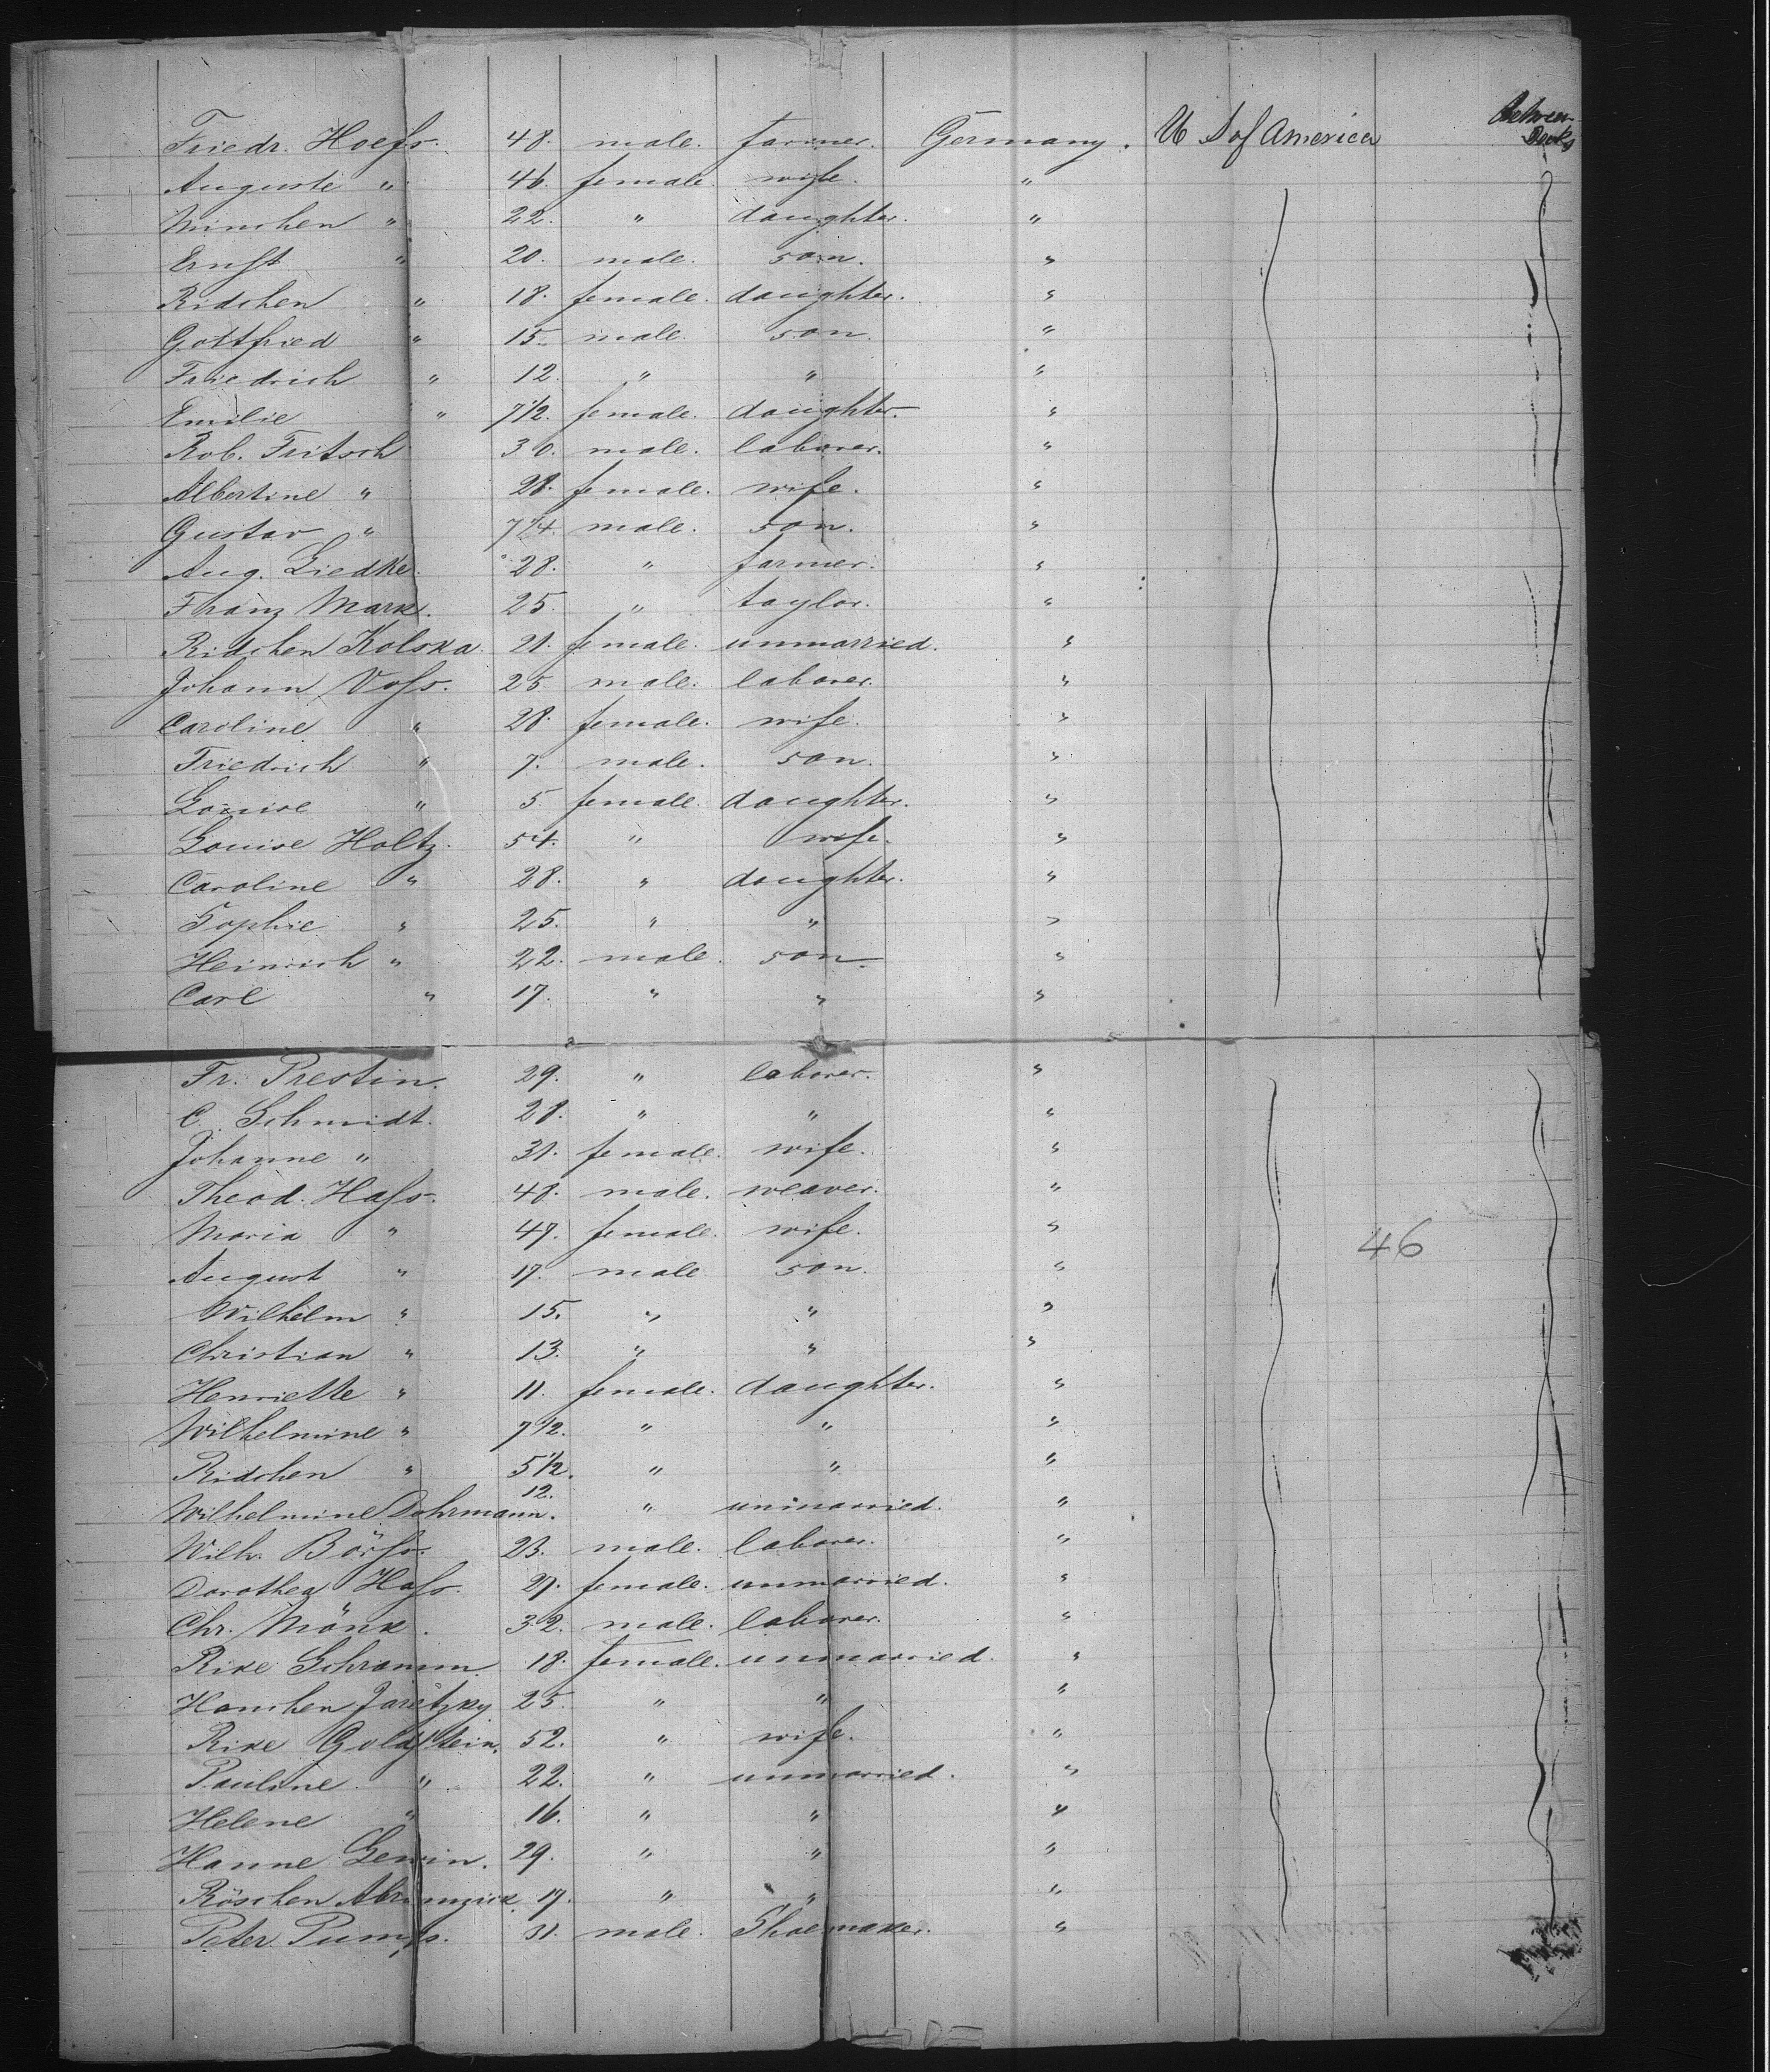 Friedr. Hoefs. 48. male. farmer. Germany. U S of America Between Decks
Auguste " 46. female. wife. "
Minchen " 22. " daughter. "
Ernst " 20. male. son. "
Ridchen " 18. female. daughter. "
Gottfried " 15. male. son. "
Friedrich " 12. " " "
Emilie " 7 1/2. female. daughter. "
Rob. Fritsch 30. male. laborer. "
Albertine " 28. female. wife. "
Gustav " 7 1/4. male. son. "
Aug. Liedke. 28. " farmer. "
Franz Mark. 25. " taylor. "
Ridchen Kolska. 21. female. unmarried. "
Johann Voss. 25. male. laborer. "
Caroline " 28. female. wife. "
Friedrich " 7. male. son. "
Louise " 5 female. daughter. "
Louise Holtz. 54. " wife. "
Caroline " 28. " daughter. "
Sophie " 25. " " "
Heinrich " 22. male. son. "
Carl " 17. " " "
Fr. Prestin. 29. " laborer. "
C. Schmidt. 28. " " "
Johanne " 31. female. wife. "
Theod. Hass. 48. male. weaver. "
Maria " 47. female. wife. "
August " 17. male son. "
46
Wilhelm " 15. " " "
Christian " 13. " " "
Henriette " 11. female. daughter. "
Wilhelmine " 7 1/2. " " "
Ridchen " 5 1/2. " " "
Wilhelmine Dohrmann. 12. " unmarried. "
Wilh. Börss. 23. male. laborer. "
Dorothea Hass. 27. female. unmarried. "
Chr. Mönk. 32. male. laborer. "
Rike Schramm. 18. female. unmarried. "
Hanchen Jaretzky. 25. " " "
Rike Goldstein. 52. " wife. "
Pauline " 22. " unmarried. "
Helene " 16. " " "
Hanne Lewin. 29. " " "
Röschen 17. " " "
Peter Pumps. 31. male. Shoemaker. "